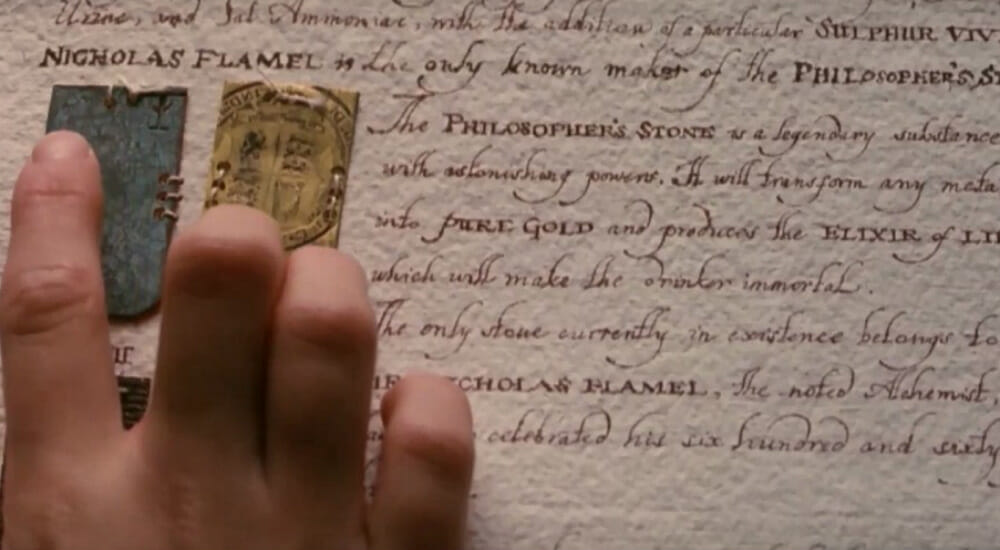 Urine, and Sal Ammoniac, with the addition of a particular SULPHUR VIV
NICHOLAS FLAMEL is the only known maker of the PHILOSOPHER'S ST
The PHILOSOPHER'S STONE is a legendary substance
with astonishing powers. It will transform any meta
into PURE GOLD and produces the ELIXIR of LI
which will make the drinker immortal.
The only stone currently in existence belongs to
NICHOLAS FLAMEL, the noted Alchemist,
celebrated his six hundred and sixty